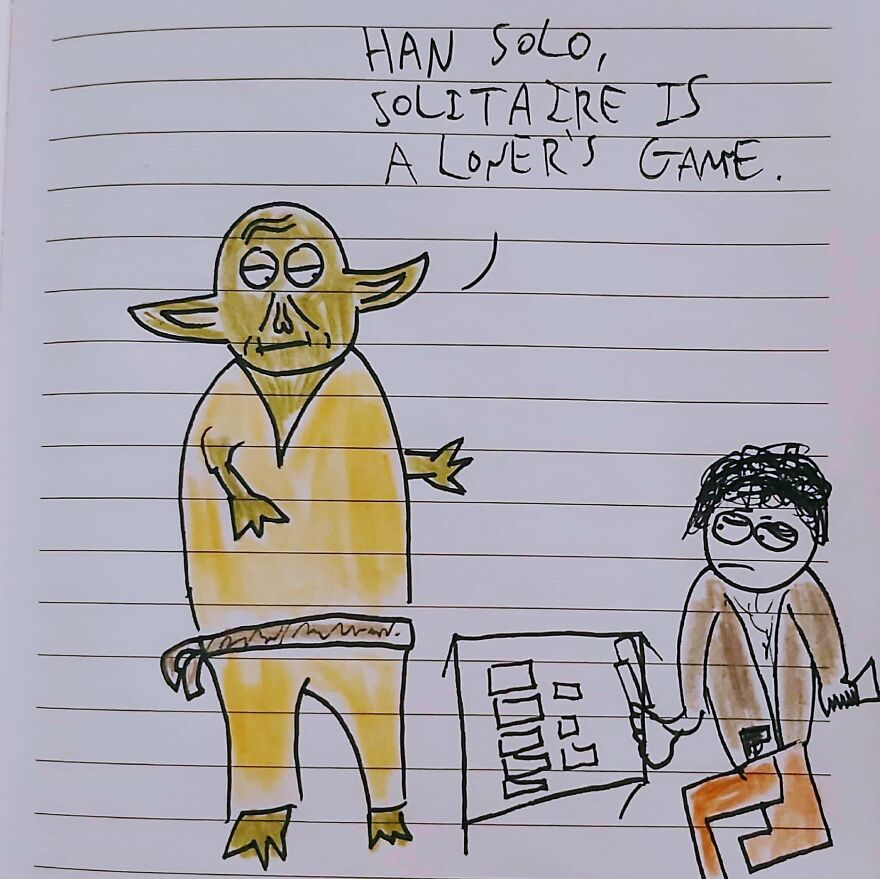 HAN SOLO,
SOLITAIRE IS
A LONER'S GAME.